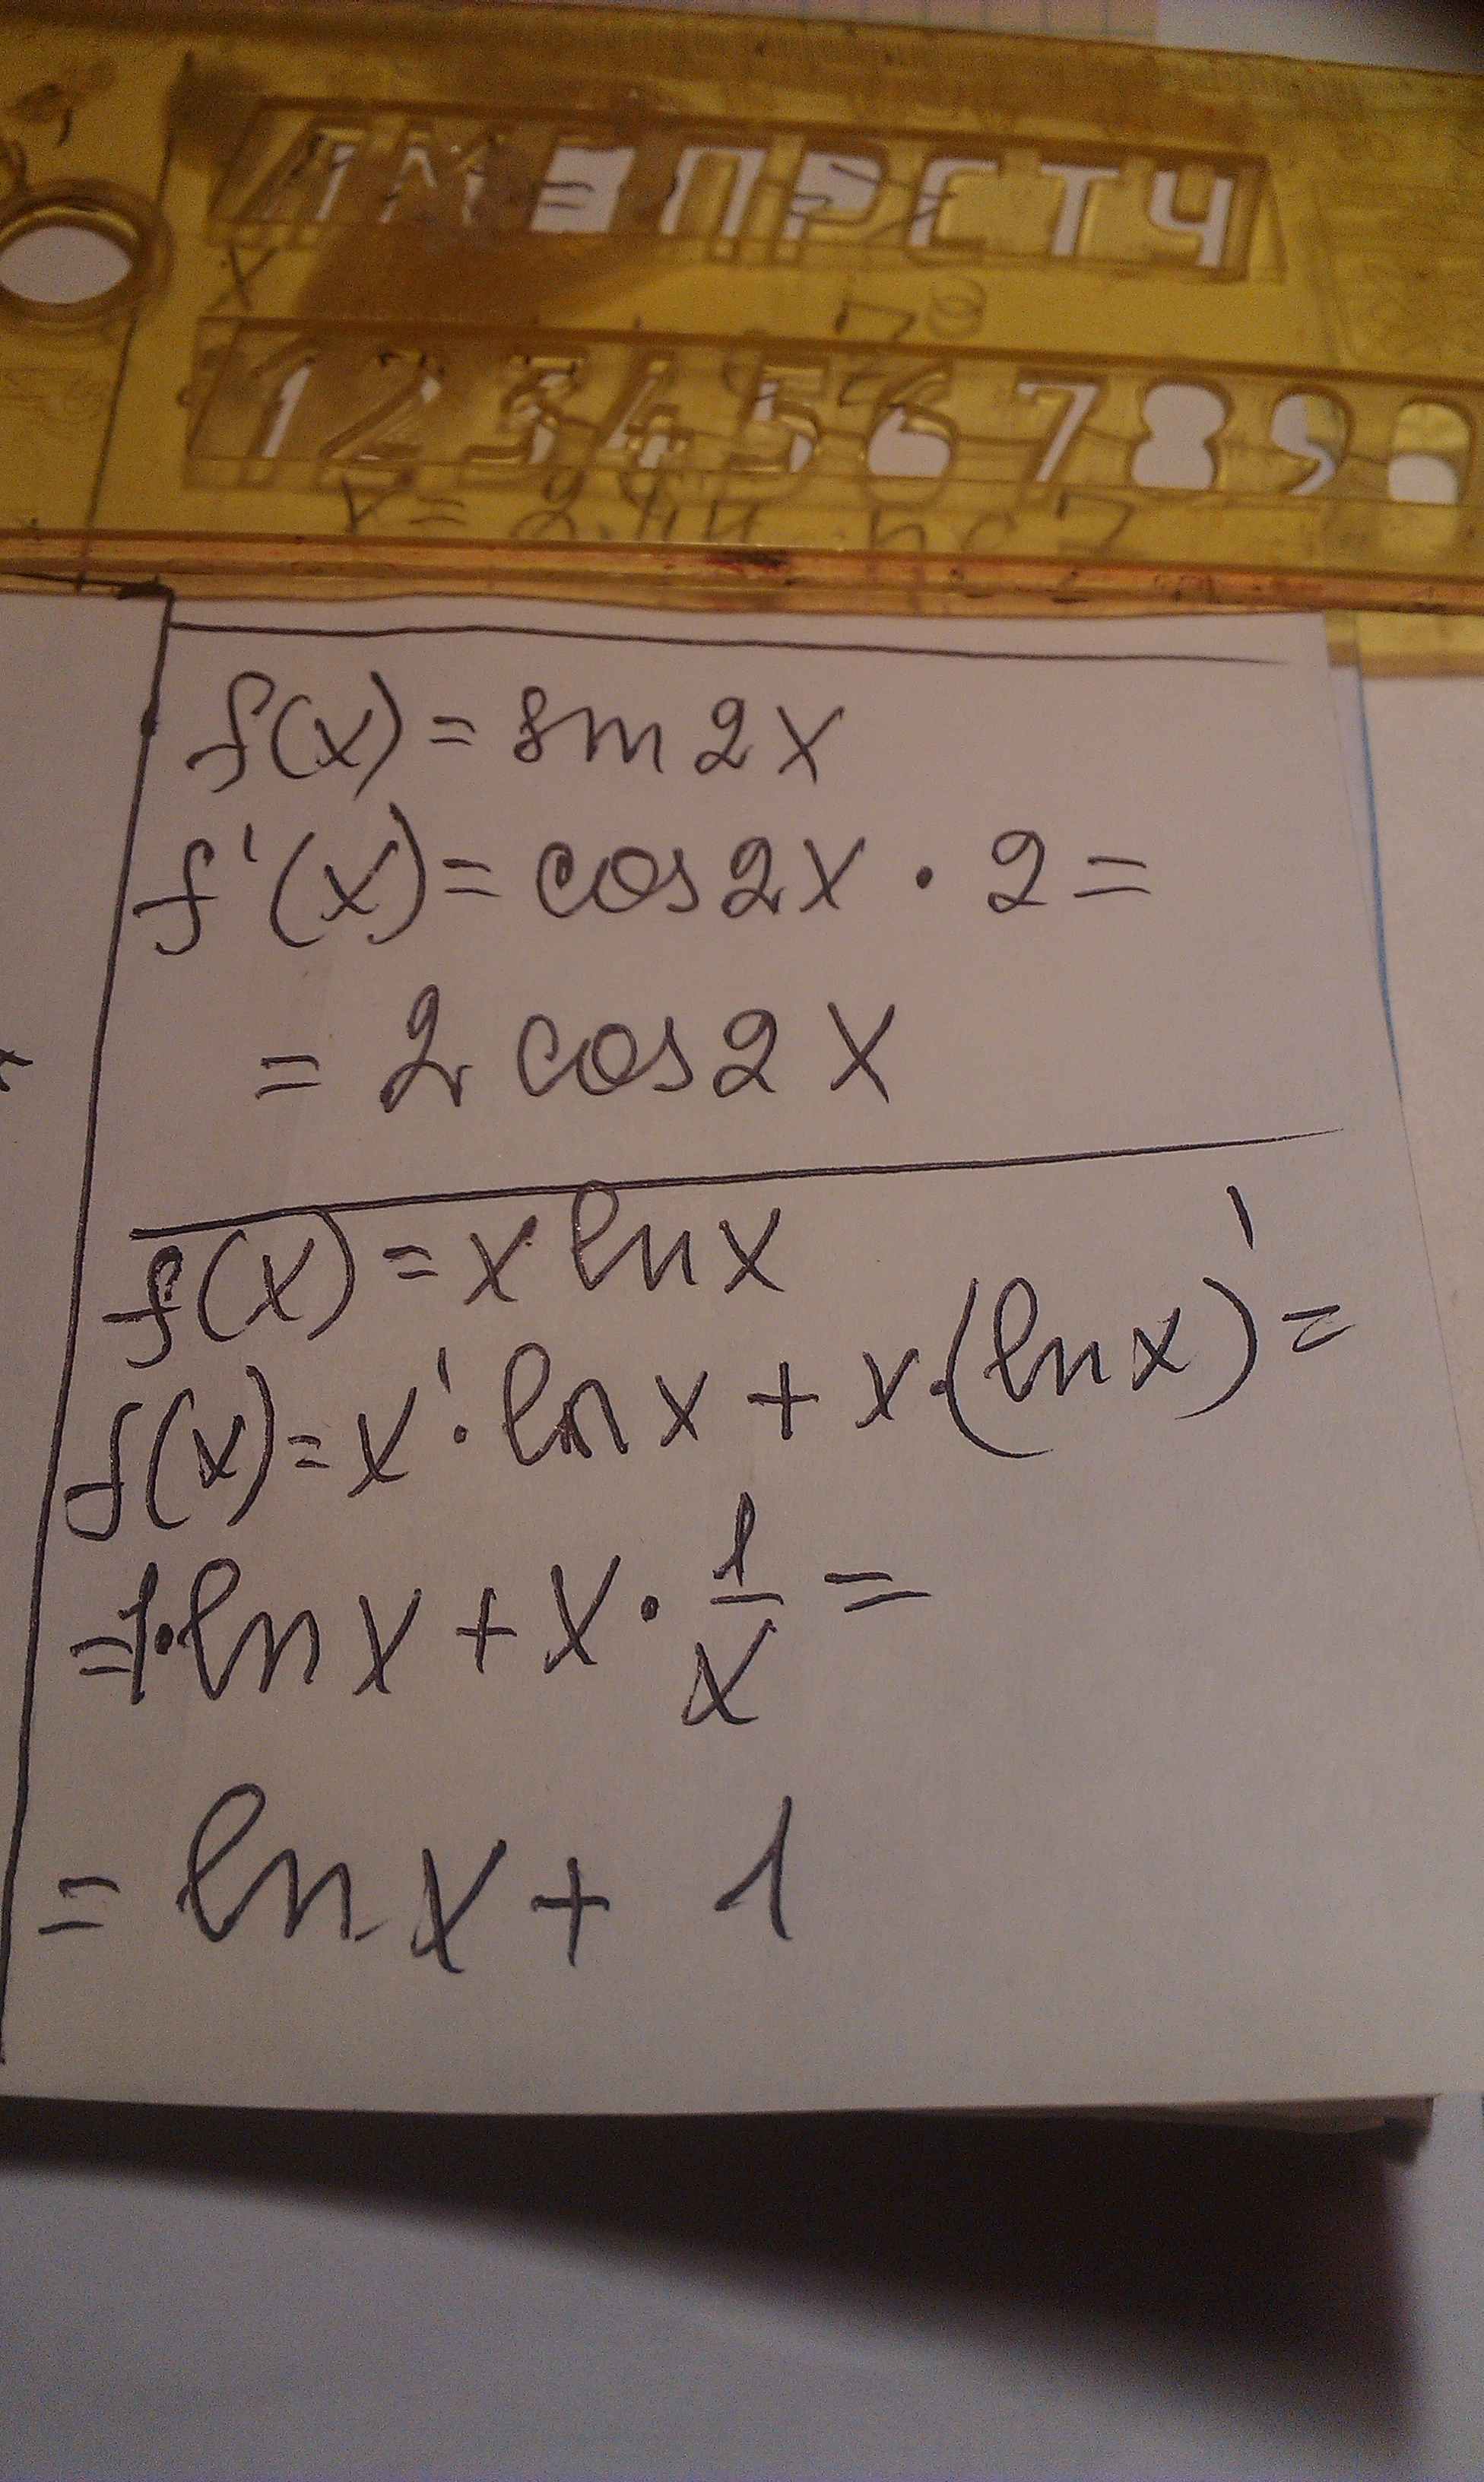 ЛМ=ПРСТЧ
1234567890
f(x) = sin 2x
f'(x) = cos 2x · 2 =
= 2 cos 2x
f(x) = x ln x
f(x) = x' · ln x + x · (ln x)' =
= 1 · ln x + x · 1/x =
= ln x + 1